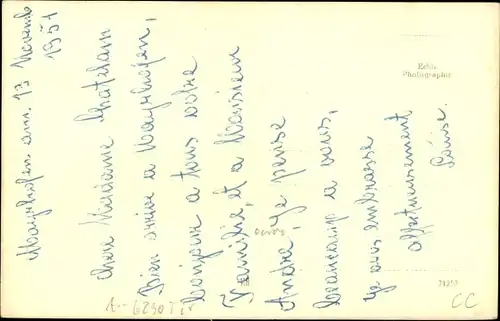 Mayrhofen am. 13 Novemb
1951
Chere Madame Chatelain
Bien arrivé a Mayrhofen,
bonjour a tous votre
Familie, et a Monsieur
André, Je pense
beaucoup a vous,
je vous embrasse
affectueusement
Louise.
Echte
Photographie
A-6290 Tir
71257
CC